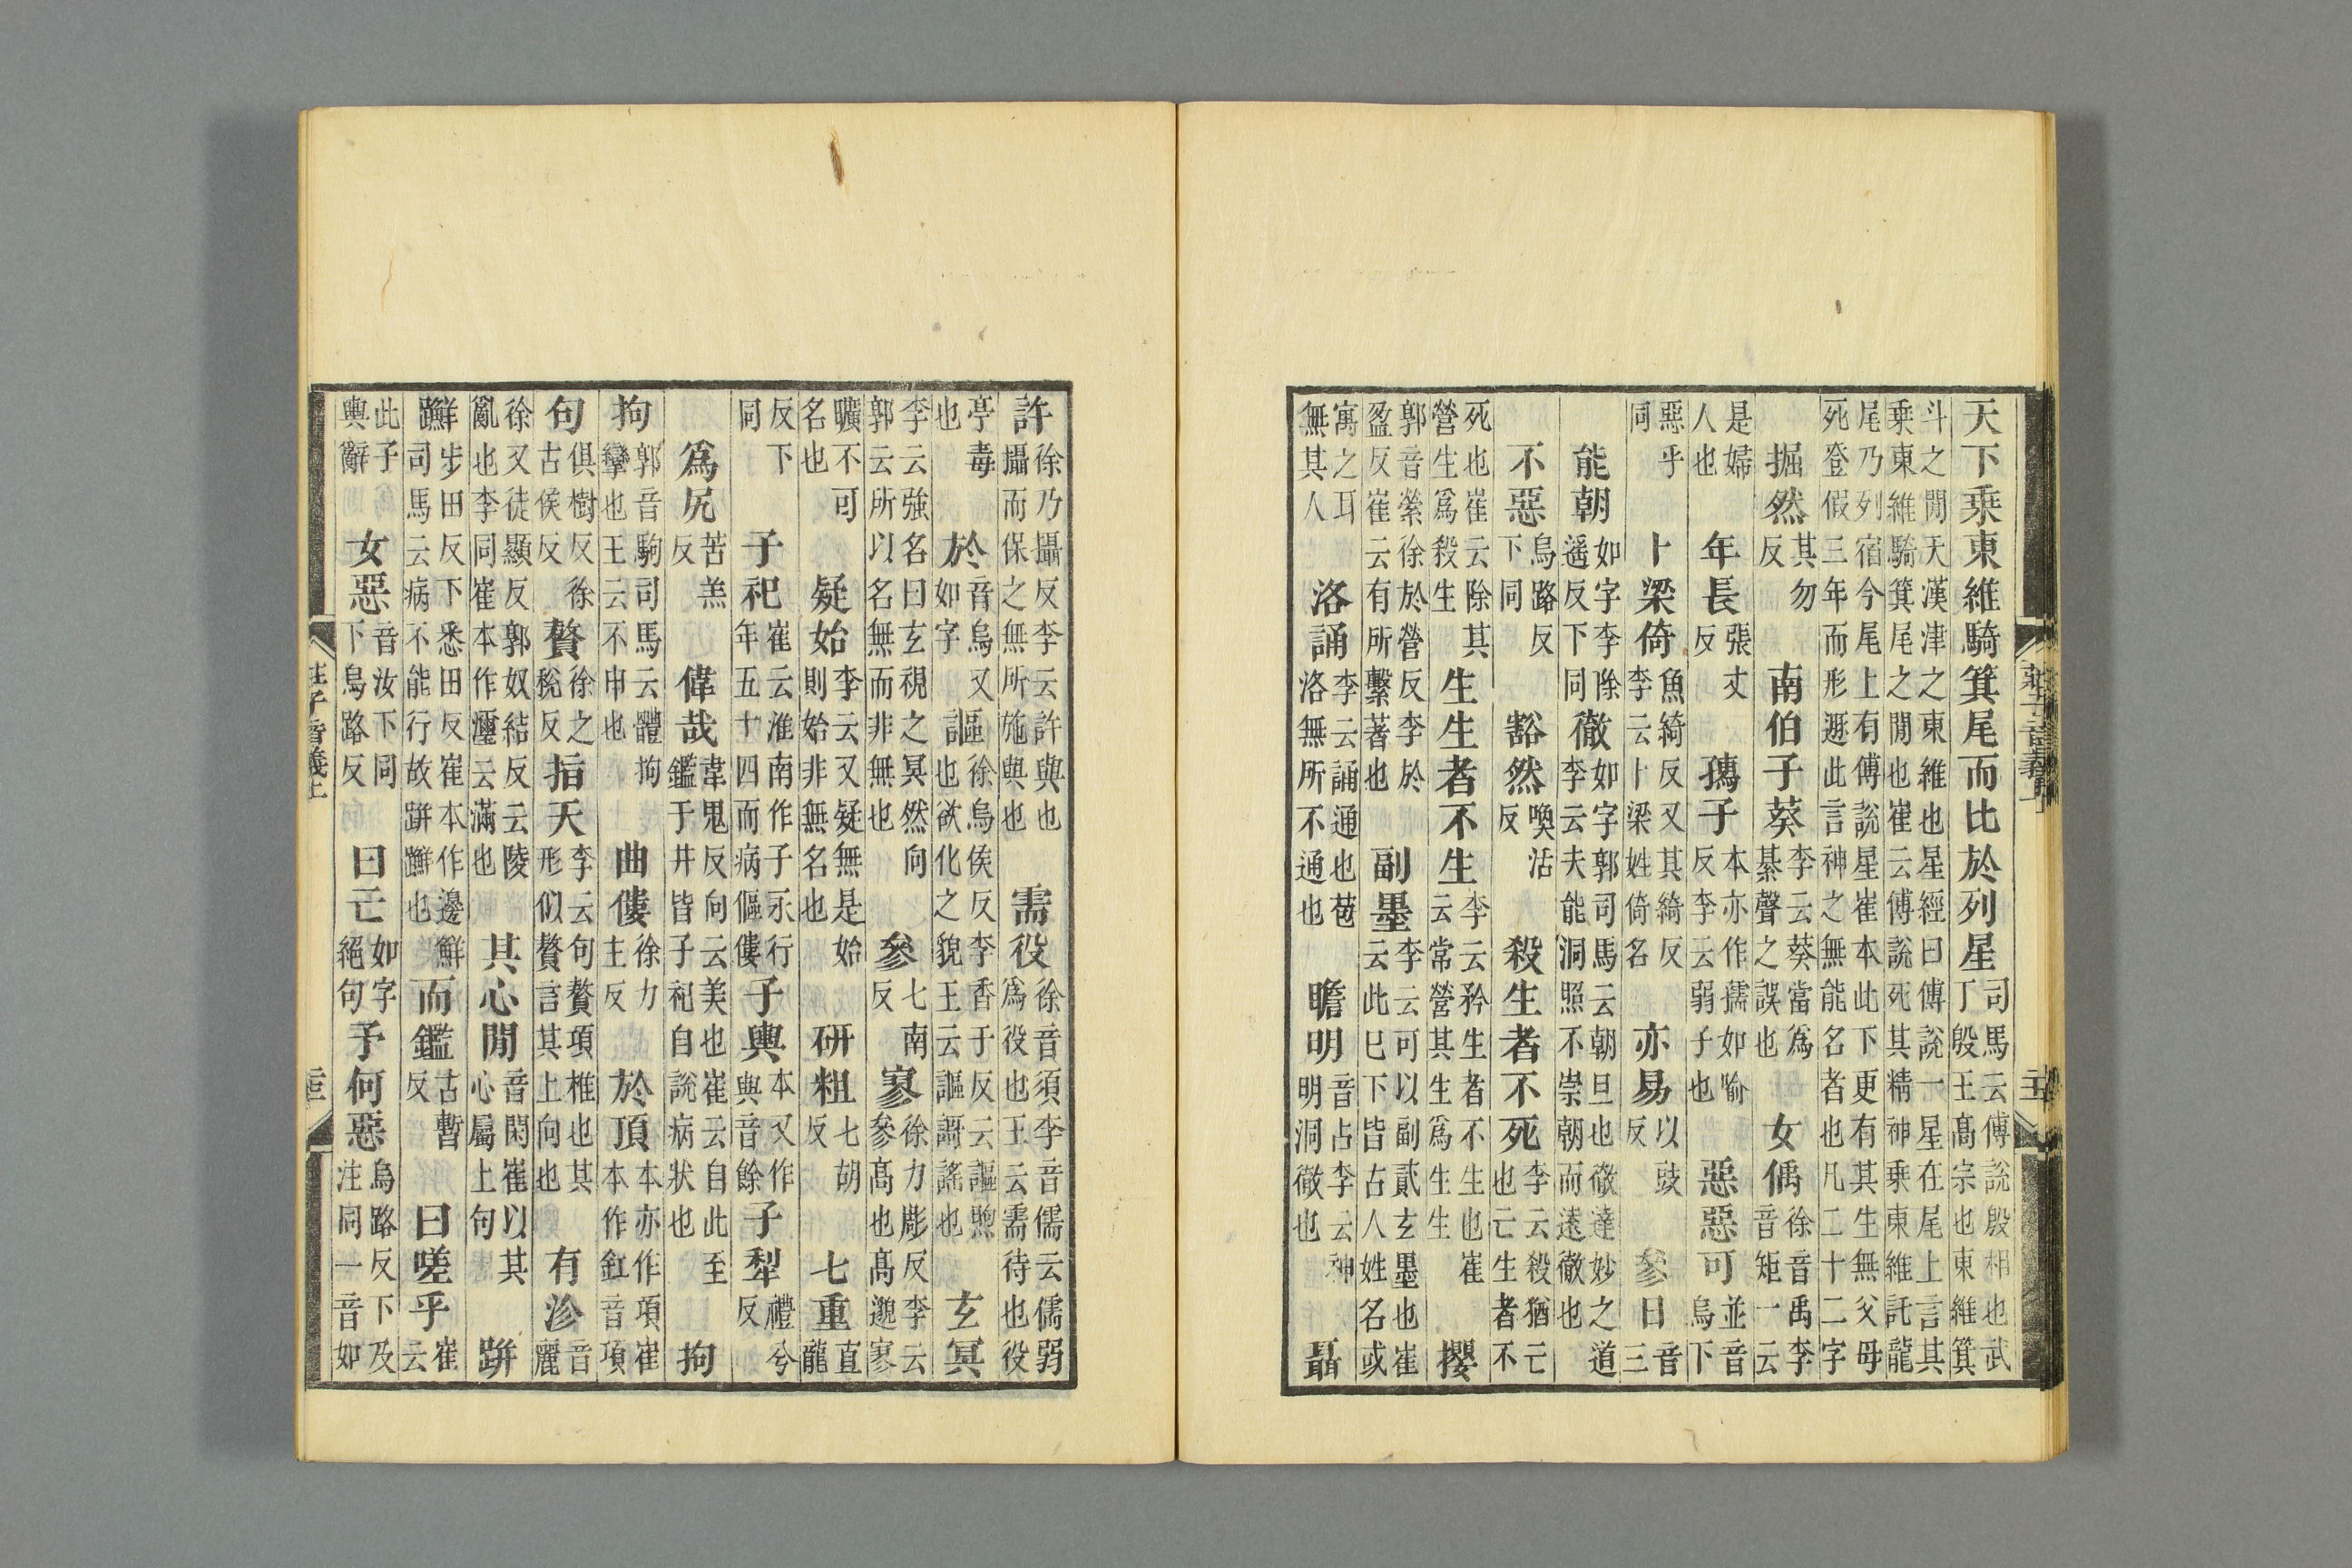 莊子音義上
天下乗東維騎箕尾而比於列星司馬云傅說殷相也武丁殷王髙宗也東維箕
斗之閒天漢津之東維也星經曰傅說一星在尾上言其乗東維騎箕尾之閒也崔云傅說死其精神乗東維託龍
尾乃列宿今尾上有傅說星崔本此下更有其生無父母死登假三年而形遯此言神之無能名者也凡二十二字
掘然其勿反南伯子葵李云葵當爲綦聲之誤也女偊徐音禹李音矩一云
是婦人也年長張丈反孺子本亦作孺如喻反李云弱子也惡惡可並音烏下
惡乎同卜梁倚魚綺反又其綺反李云卜梁姓倚名亦易以豉反參日音三
能朝如字李除遥反下同徹如字郭司馬云朝旦也徹達妙之道李云夫能洞照不崇朝而逺徹也
不惡烏路反下同豁然喚活反殺生者不死李云殺猶亡也亡生者不
死也崔云除其營生爲殺生生生者不生李云矜生者不生也崔云常營其生爲生生攖
郭音縈徐於營反李於盈反崔云有所繫著也副墨李云可以副貳玄墨也崔云此巳下皆古人姓名或
寓之耳無其人洛誦李云誦通也苞洛無所不通也瞻明音占李云神明洞徹也聶
許徐乃攝反李云許與也攝而保之無所施與也需役徐音須李音儒云儒弱爲役也王云需待也役
亭毒也於音烏又如字謳徐烏侯反李香于反云謳煦也欲化之貌王云謳謌謠也玄冥
李云強名曰玄視之冥然向郭云所以名無而非無也參七南反寥徐力彫反李云參髙也髙邈寥
曠不可名也疑始李云又疑無是始則始非無名也研粗七胡反七重直龍
反下同子祀崔云淮南作子永行年五十四而病傴僂子輿本又作與音餘子犁禮兮反
爲尻苦羔反偉哉韋鬼反向云美也崔云自此至鑑于井皆子祀自說病狀也拘
拘郭音駒司馬云體拘攣也王云不申也曲僂徐力主反於頂本亦作項崔本作釭音項
句俱樹反徐古侯反贅徐之稅反指天李云句贅項椎也其形似贅言其上向也有沴音麗
徐又徒顯反郭奴結反云陵亂也李同崔本作灑云滿也其心閒音閑崔以其心屬上句跰
𨇤步田反下悉田反崔本作邊鮮司馬云病不能行故跰𨇤也而鑑古暫反曰嗟乎崔云
此子輿辭女惡音汝下同下烏路反曰亡如字絕句予何惡烏路反下及注同一音如
莊子音義上